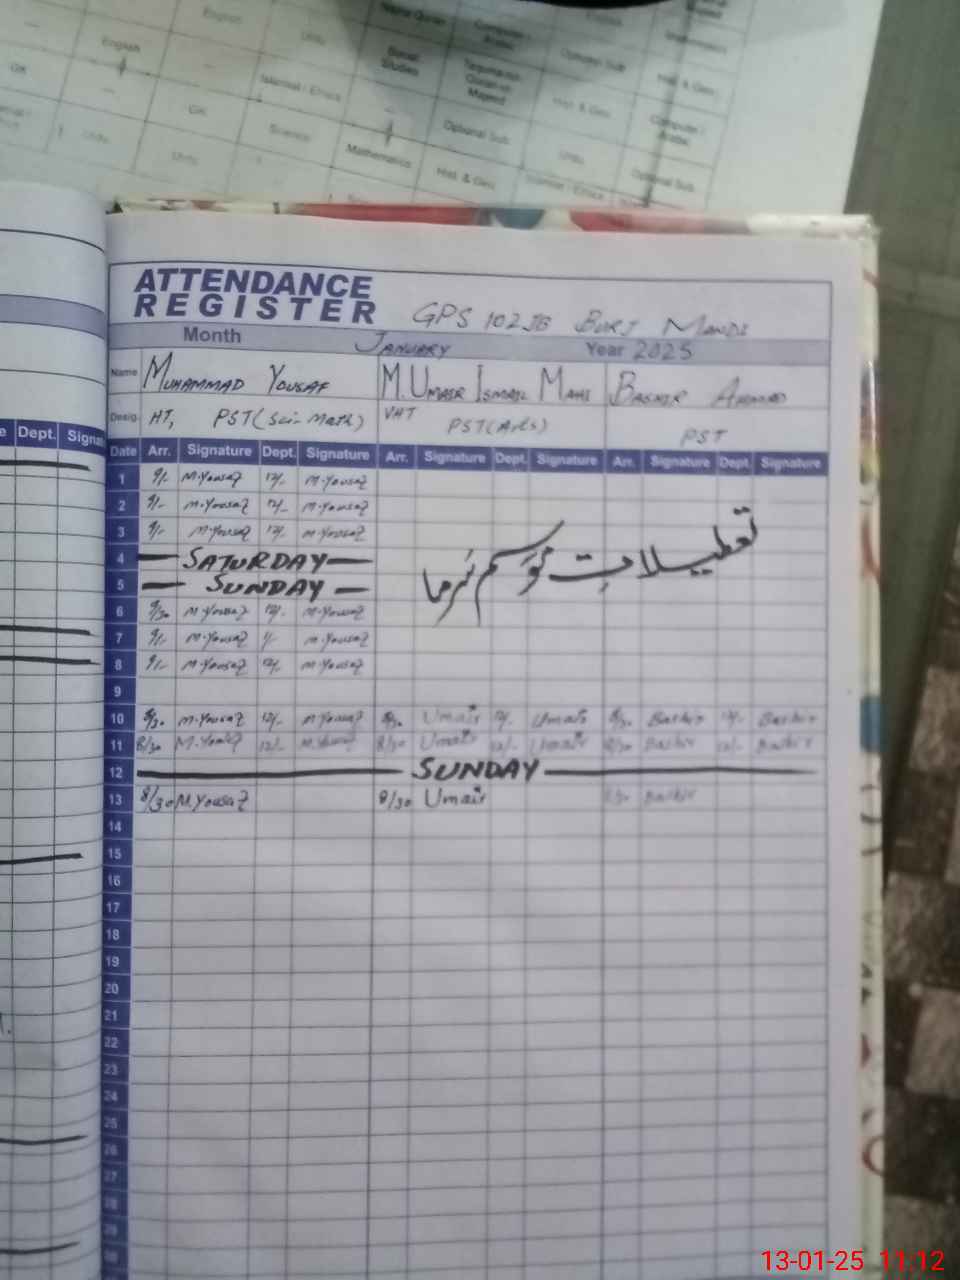 English
Urdu
English
Islamiat / Ethics
Social Studies
Optional Sub.
Hist. & Geo.
GK
GK
Science
Optional Sub.
Urdu
Urdu
Mathematics
Hist. & Geo.
Islamiat / Ethics
Optional Sub.
ATTENDANCE
REGISTER GPS 102 JB BURJ MANDI
Month JANUARY Year 2025
Name MUHAMMAD YOUSAF M. UMAIR ISMAIL MAHI BASHIR AHMAD
Desig. HT, PST (Sci-Math) VHT PST (Arts) PST
e Dept. Signa
Date Arr. Signature Dept. Signature Arr. Signature Dept. Signature Arr. Signature Dept. Signature
1 9/- M.Yousaf 12/- M.Yousaf
2 9/- M.Yousaf 12/- M.Yousaf
3 9/- M.Yousaf 12/- M.Yousaf
تعطیلات موسم سرما
4 SATURDAY
5 SUNDAY
6 9/30 M.Yousaf 12/- M.Yousaf
7 9/- M.Yousaf 1/- M.Yousaf
8 9/- M.Yousaf 12/- M.Yousaf
9
10 8/30 M.Yousaf 12/- M.Yousaf 8/30 Umair 12/- Umair 8/30 Bashir 12/- Bashir
11 8/30 M.Yousaf 12/- M.Yousaf 8/30 Umair 12/- Umair 8/30 Bashir 12/- Bashir
12 SUNDAY
13 8/30 M.Yousaf 8/30 Umair 8/30 Bashir
14
15
16
17
18
19
20
21
22
23
24
25
26
27
28
29
30
13-01-25 11:12